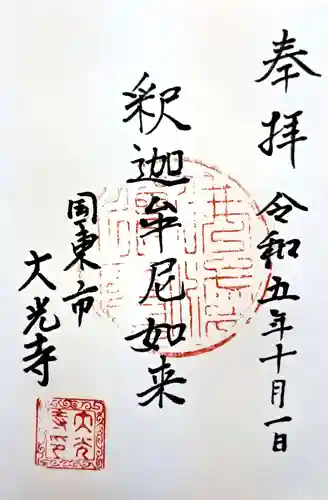 奉拝
令和五年十月一日
釈迦牟尼如来
国東市
大光寺